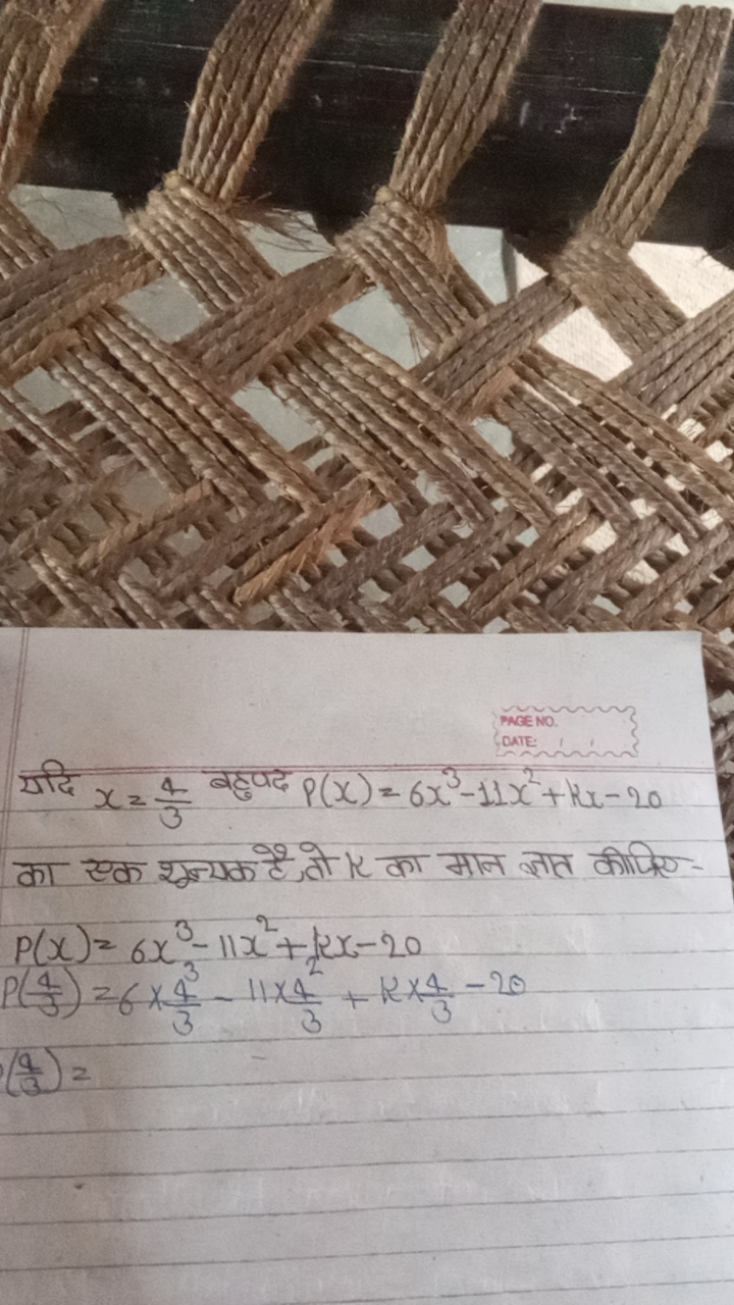 PAGE NO.
DATE: / /
यदि x = 4/3 बहुपद P(x) = 6x³-11x²+kx-20
का एक शून्यक है, तो k का मान ज्ञात कीजिए-
P(x) = 6x³-11x²+kx-20
P(4/3) = 6×4³/3 - 11×4²/3 + k×4/3 - 20
(4/3) =